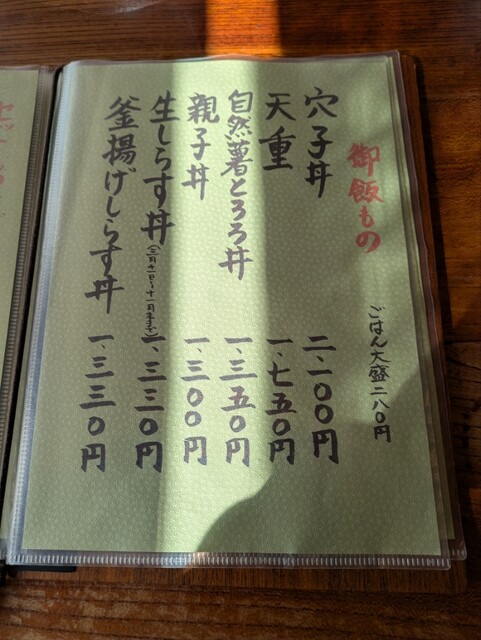 御飯もの
ごはん大盛二八〇円
穴子丼 二、一〇〇円
天重 一、七五〇円
自然薯とろろ丼 一、三五〇円
親子丼 一、三〇〇円
生しらす丼 (三月十一日〜十一月末まで) 一、三三〇円
釜揚げしらす丼 一、三三〇円